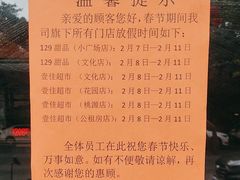 温馨提示
亲爱的顾客您好,春节期间我
司旗下所有门店放假时间如下:
129 甜品(小广场店):2月7日—2月11日
129 甜品(文化店):2月8日—2月11日
壹佳超市(文化店):2月8日—2月11日
壹佳超市(花园店):2月8日—2月11日
壹佳超市(桃源店):2月8日—2月11日
壹佳超市(公租房店):2月8日—2月11日
全体员工在此祝您春节快乐、
万事如意。如有不便敬请谅解,再
次感谢您的惠顾。